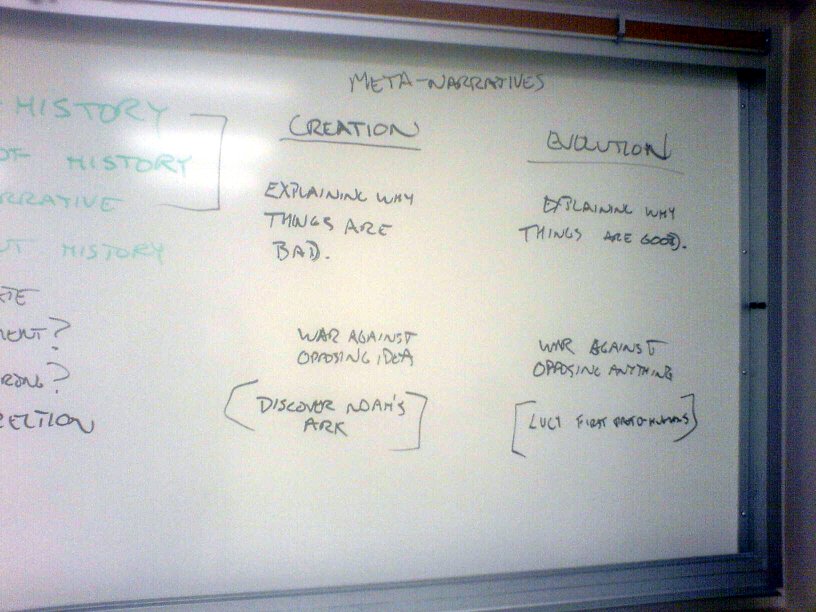 META-NARRATIVES
HISTORY
OF HISTORY
HISTORY
CREATION
EXPLAINING WHY
THINGS ARE
BAD.
WAR AGAINST
OPPOSING IDEA
[DISCOVER NOAH'S
ARK]
EVOLUTION
EXPLAINING WHY
THINGS ARE GOOD.
WAR AGAINST
OPPOSING ANYTHING
[LUCY FIRST PROTO-HUMANS]